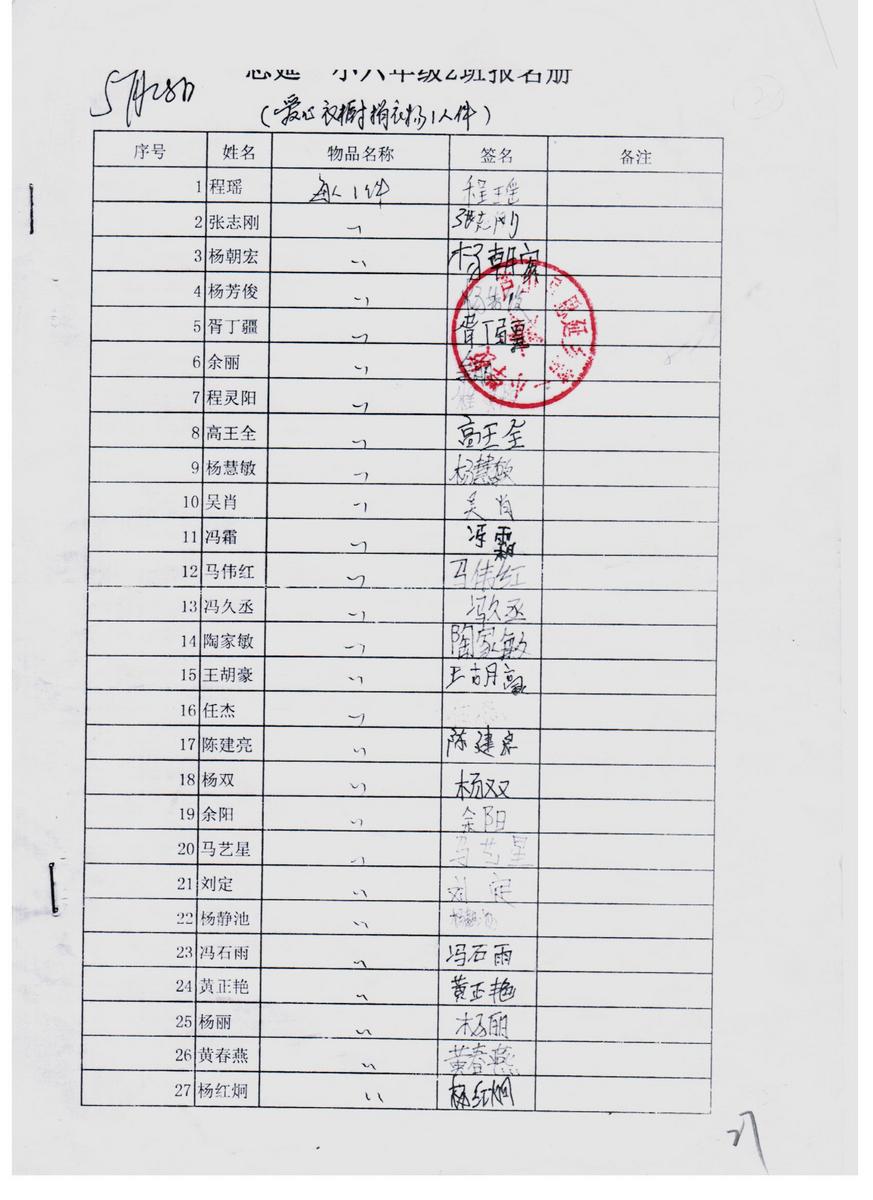 5月28日
思延一小六年级2班报名册
(爱心衣橱捐衣物1人件)
序号 姓名 物品名称 签名 备注
1 程瑶 每人1件 程瑶
2 张志刚 〃 张志刚
3 杨朝宏 〃 杨朝宏
4 杨芳俊 〃 杨芳俊
5 胥丁疆 〃 胥丁疆
6 余丽 〃 余丽
7 程灵阳 〃 程
8 高王全 〃 高王全
9 杨慧敏 〃 杨慧敏
10 吴肖 〃 吴肖
11 冯霜 〃 冯霜
12 马伟红 〃 马伟红
13 冯久丞 〃 冯久丞
14 陶家敏 〃 陶家敏
15 王胡豪 〃 王胡豪
16 任杰 〃
17 陈建亮 〃 陈建亮
18 杨双 〃 杨双
19 余阳 〃 余阳
20 马艺星 〃 马艺星
21 刘定 〃 刘定
22 杨静池 〃 杨静池
23 冯石雨 〃 冯石雨
24 黄正艳 〃 黄正艳
25 杨丽 〃 杨丽
26 黄春燕 〃 黄春燕
27 杨红炯 〃 杨红炯
27